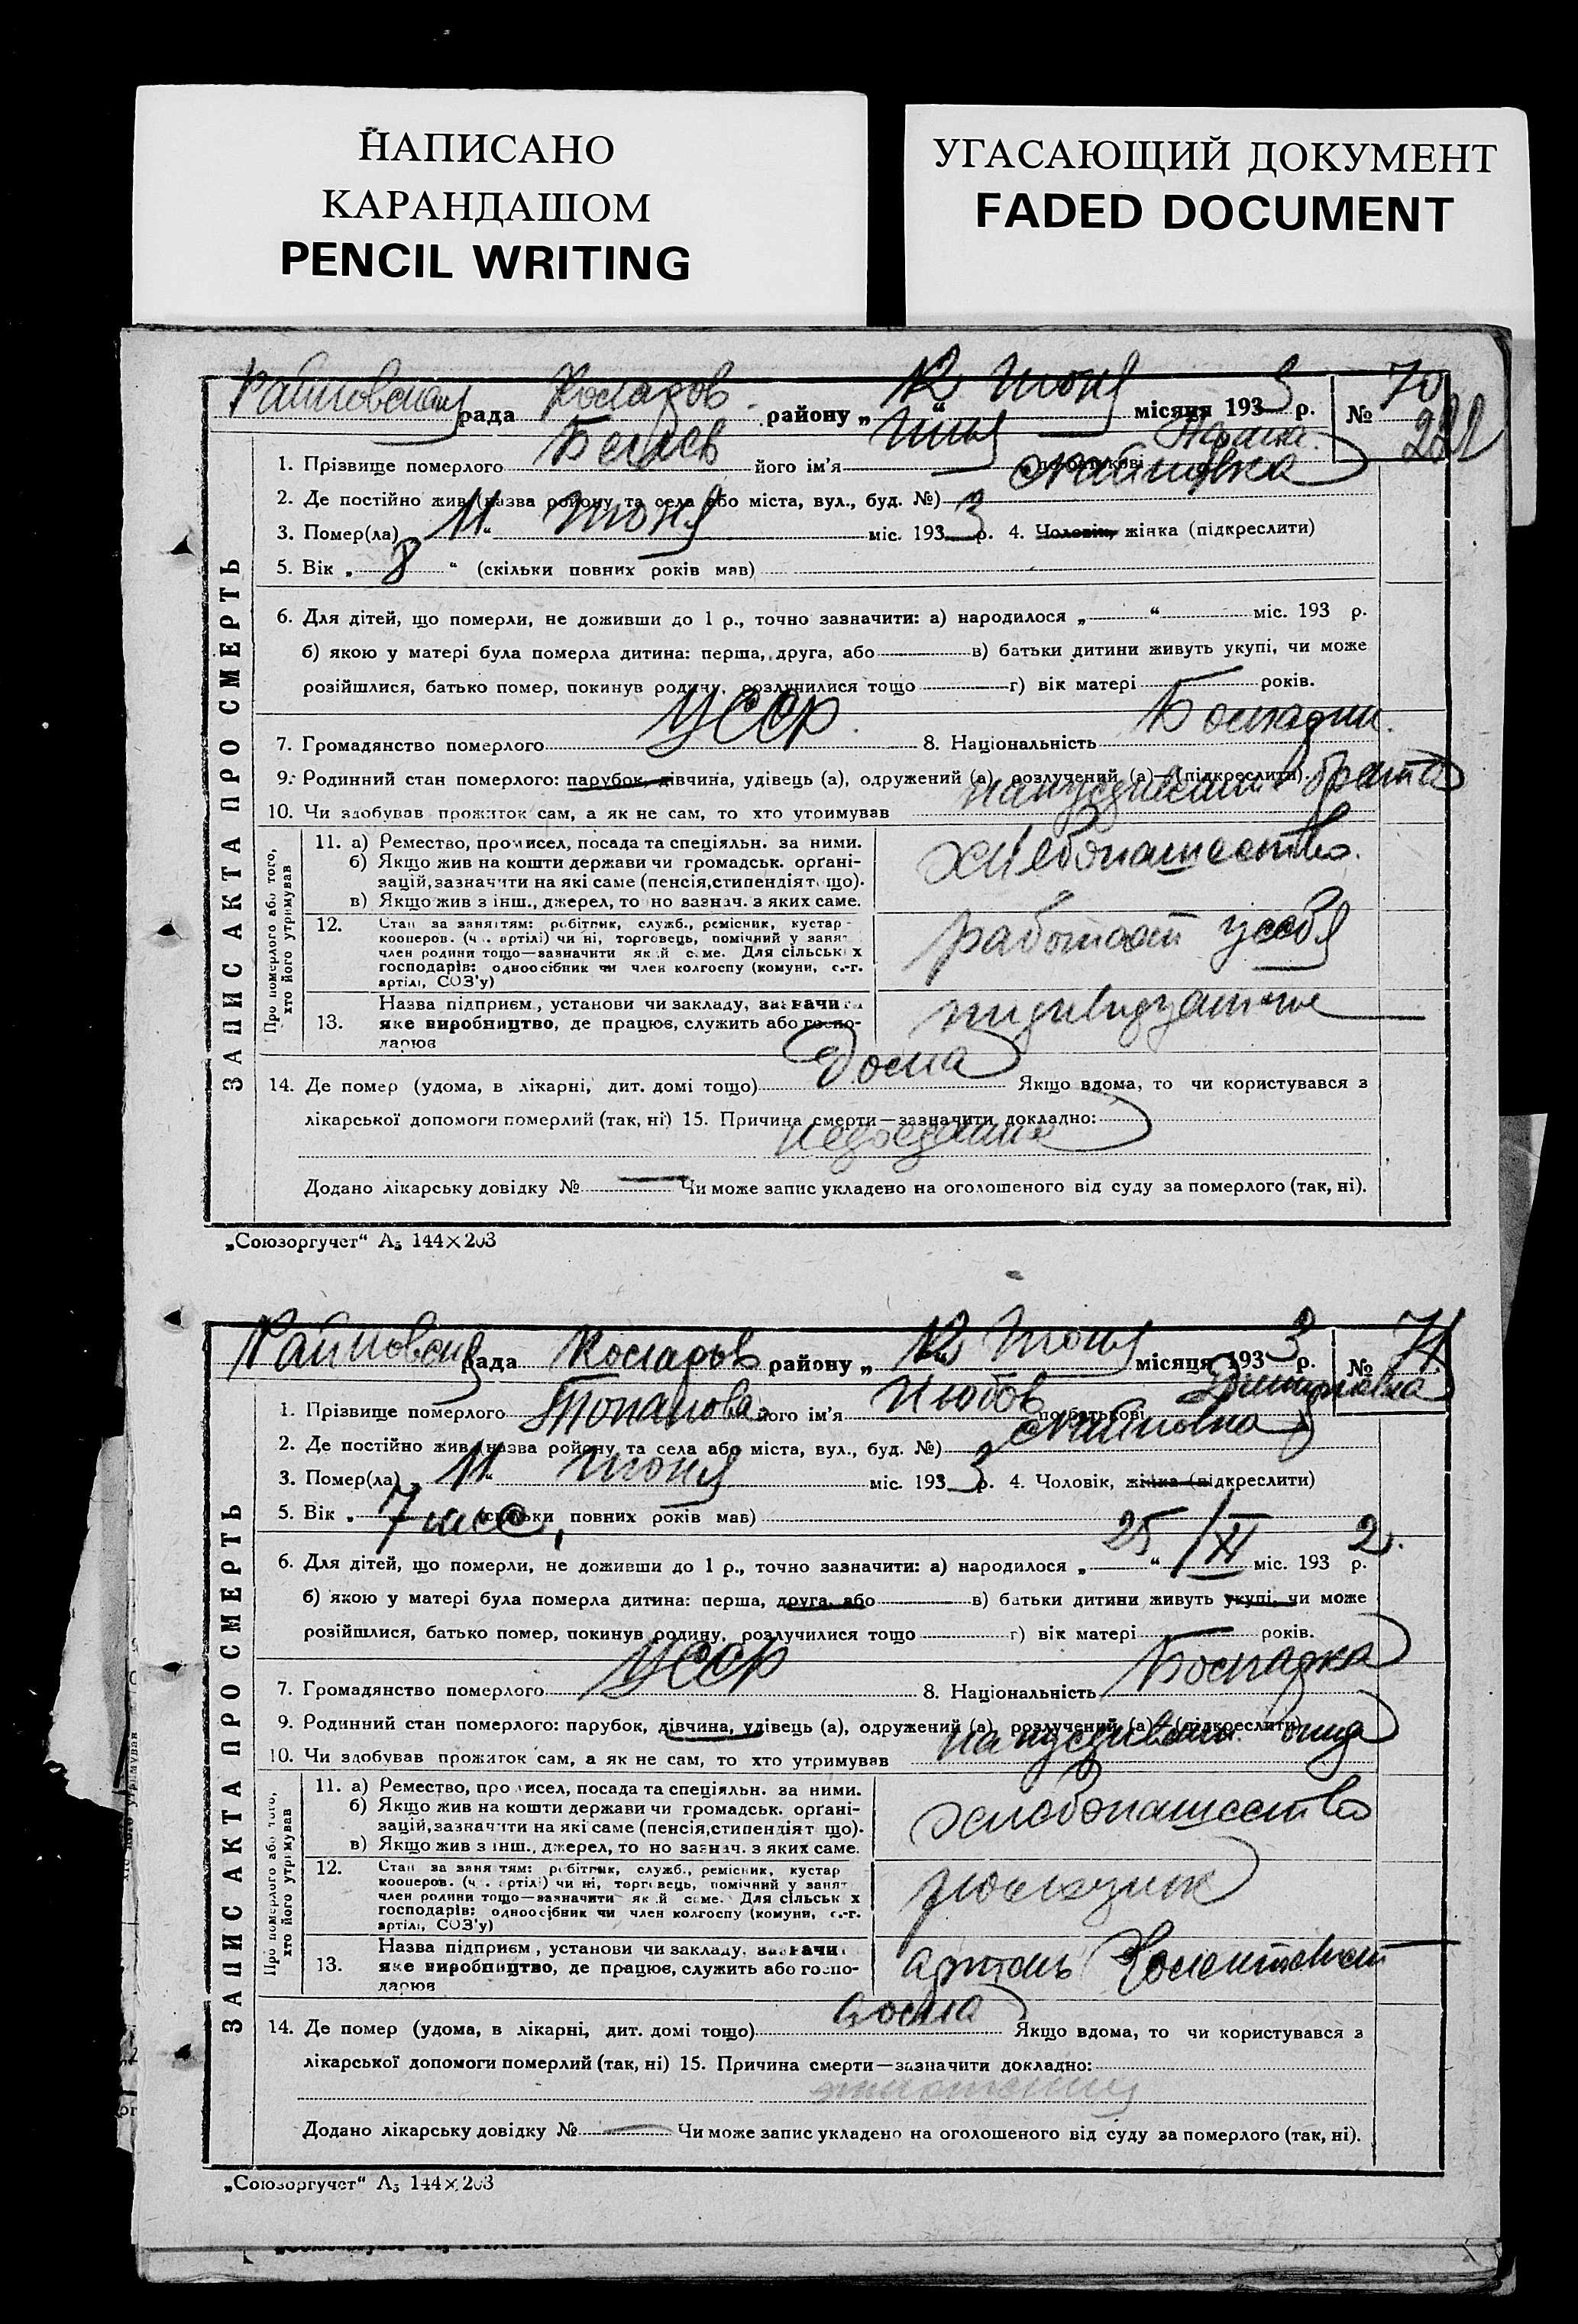 НАПИСАНО
КАРАНДАШОМ
PENCIL WRITING
УГАСАЮЩИЙ ДОКУМЕНТ
FADED DOCUMENT
рада району „ 12 июня місяця 193 3 р. № 70
1. Прізвище померлого його ім'я по батькові
2. Де постійно жив (назва району та села або міста, вул., буд. №)
3. Помер(ла) „ 11 “ июня міс. 193 3 р. 4. Чоловік, жінка (підкреслити)
5. Вік „ 8 “ (скільки повних років мав)
6. Для дітей, що померли, не доживши до 1 р., точно зазначити: а) народилося „ “ міс. 193 р.
б) якою у матері була померла дитина: перша, друга, або в) батьки дитини живуть укупі, чи може
розійшлися, батько помер, покинув родину, розлучилися тощо г) вік матері років.
7. Громадянство померлого УССР 8. Національність
9. Родинний стан померлого: парубок, дівчина, удівець (а), одружений (а), розлучений (а)—(підкреслити).
10. Чи здобував прожиток сам, а як не сам, то хто утримував на иждивении брата
ЗАПИС АКТА ПРО СМЕРТЬ
Про померлого або того, хто його утримував
11. а) Ремество, промисел, посада та спеціяльн. за ними.
б) Якщо жив на кошти держави чи громадськ. орґані-
зацій, зазначити на які саме (пенсія, стипендія тощо).
в) Якщо жив з інш., джерел, то но вазнач. з яких саме.
хлебопашество
12. Стан за заняттям: робітник, служб., ремісник, кустар-
кооперов. (ч. артілі) чи ні, торговець, помічний у занят.
член родини тощо—зазначити який саме. Для сільських
господарів: одноосібник чи член колгоспу (комуни, с.-г.
артілі, СОЗ'у)
работает у себя
13. Назва підприєм., установи чи закладу, зазначити
яке виробництво, де працює, служить або госпо-
дарює
14. Де помер (удома, в лікарні, дит. домі тощо) дома Якщо вдома, то чи користувався з
лікарської допомоги померлий (так, ні) 15. Причина смерти—зазначити докладно:
недоедание
Додано лікарську довідку № — Чи може запис укладено на оголошеного від суду за померлого (так, ні).
„Союзоргучет“ А₅ 144×203
рада району „ 12 июня місяця 193 3 р. № 71
1. Прізвище померлого його ім'я Любов по батькові Дмитровна
2. Де постійно жив (назва району та села або міста, вул., буд. №)
3. Помер(ла) „ 11 “ июня міс. 193 3 р. 4. Чоловік, жінка (підкреслити)
5. Вік „ 7 мес. (скільки повних років мав)
6. Для дітей, що померли, не доживши до 1 р., точно зазначити: а) народилося „ 25 “ / XI міс. 193 2 р.
б) якою у матері була померла дитина: перша, друга, або в) батьки дитини живуть укупі, чи може
розійшлися, батько помер, покинув родину, розлучилися тощо — г) вік матері — років.
7. Громадянство померлого УССР 8. Національність
9. Родинний стан померлого: парубок, дівчина, удівець (а), одружений (а), розлучений (а)—(підкреслити).
10. Чи здобував прожиток сам, а як не сам, то хто утримував на иждивении отца
ЗАПИС АКТА ПРО СМЕРТЬ
Про померлого або того, хто його утримував
11. а) Ремество, промисел, посада та спеціяльн. за ними.
б) Якщо жив на кошти держави чи громадськ. орґані-
зацій, зазначити на які саме (пенсія, стипендія т що).
в) Якщо жив з інш., джерел, то но зазнач. з яких саме.
хлебопашество
12. Стан за заняттям: робітник, служб., ремісник, кустар
кооперов. (ч. артілі) чи ні, торговець, помічний у занят.
член родини тощо—зазначити який саме. Для сільських
господарів: одноосібник чи член колгоспу (комуни, с.-г.
артілі, СОЗ'у)
13. Назва підприєм., установи чи закладу, зазначи
яке виробництво, де працює, служить або госпо-
дарює
артель
14. Де помер (удома, в лікарні, дит. домі тощо) дома Якщо вдома, то чи користувався з
лікарської допомоги померлий (так, ні) 15. Причина смерти—зазначити докладно:
Додано лікарську довідку № — Чи може запис укладено на оголошеного від суду за померлого (так, ні).
„Союзоргучет“ А₅ 144×203